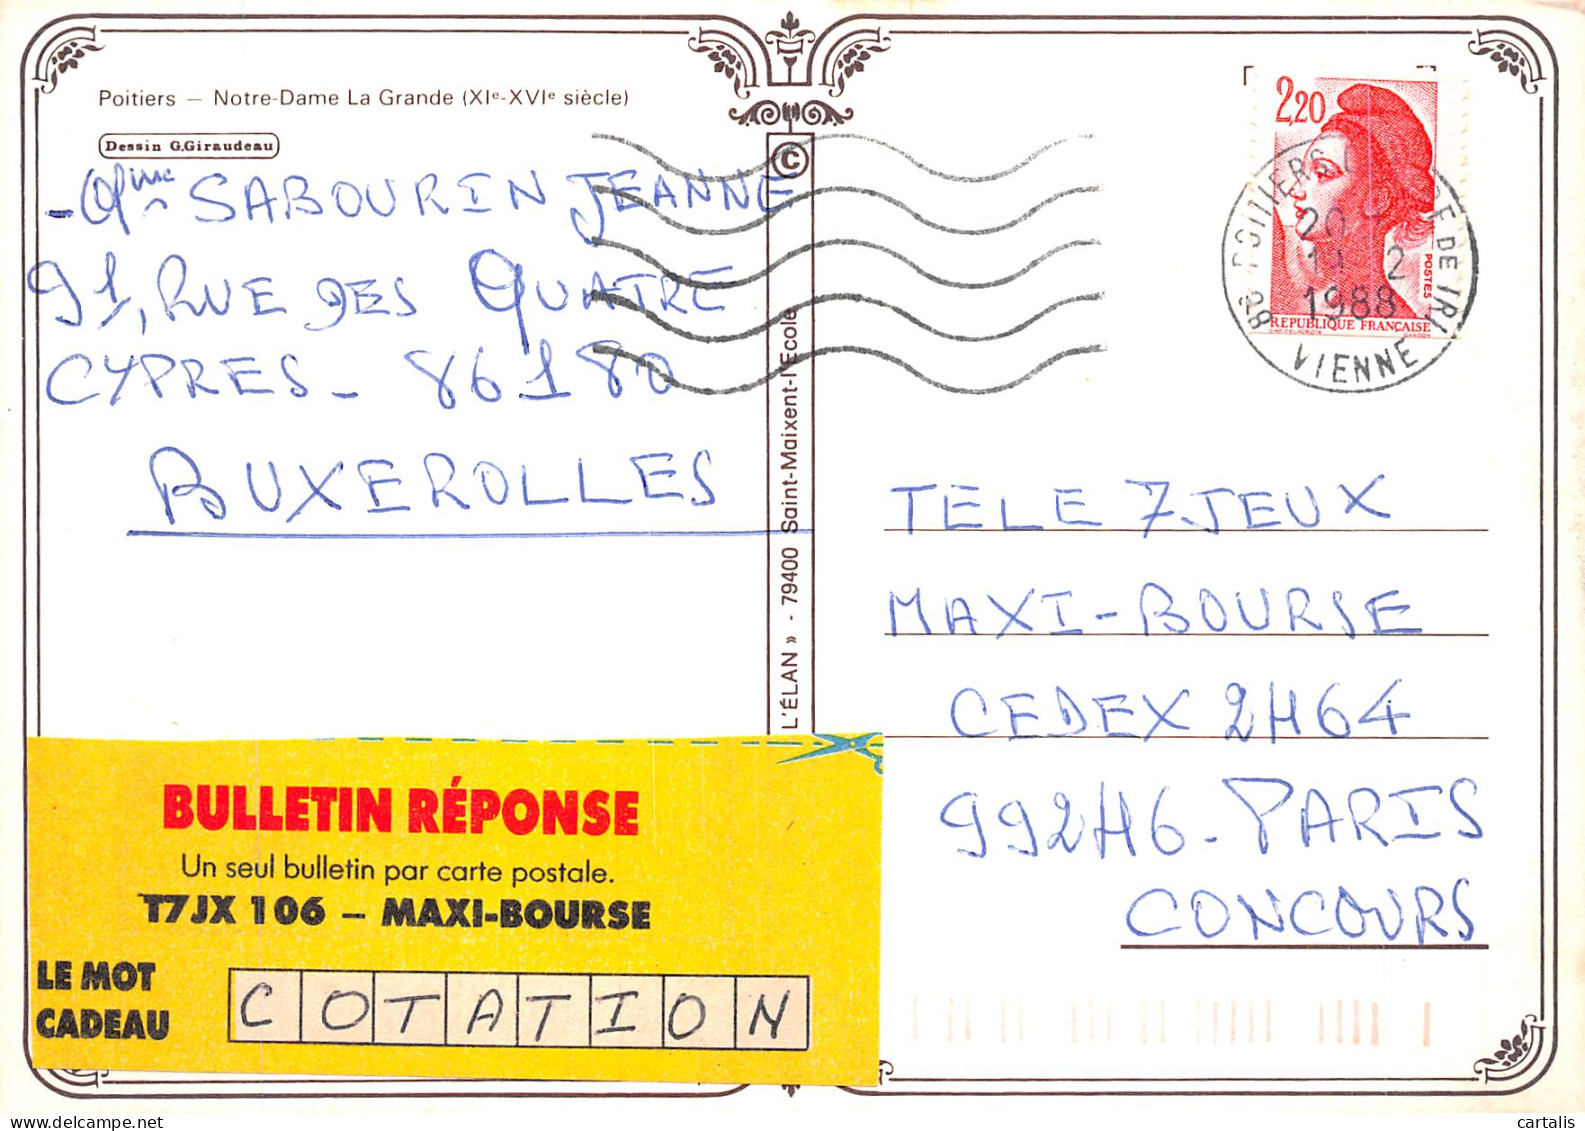 Poitiers — Notre-Dame La Grande (XIe-XVIe siècle)
Dessin G.Giraudeau
- Mme SABOURIN JEANNE
91, RUE DES QUATRE
CYPRES - 86180
BUXEROLLES
L'ÉLAN » - 79400 Saint-Maixent-l'Ecole
©
2,20
POSTES
REPUBLIQUE FRANÇAISE
86 POITIERS
DE TRI
20
2
1988
VIENNE
TELE 7 JEUX
MAXI-BOURSE
CEDEX 2H64
992H6 - PARIS
CONCOURS
BULLETIN RÉPONSE
Un seul bulletin par carte postale.
T7JX 106 – MAXI-BOURSE
LE MOT
CADEAU
COTATION
delcampe.net
cartalis